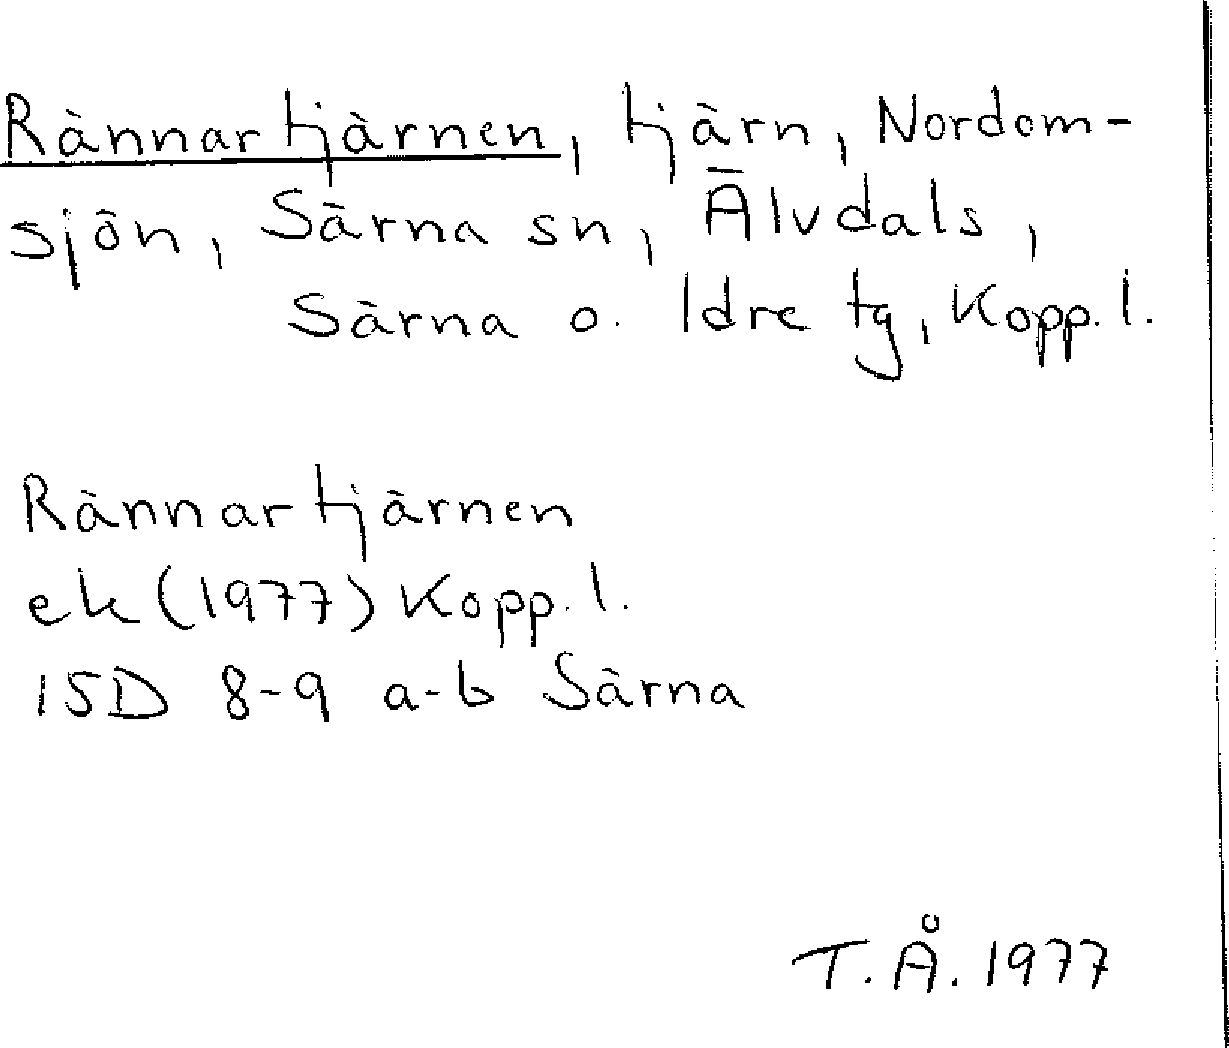 Rännartjärnen, tjärn, Nordom-
sjön, Särna sn, Älvdals,
Särna o. Idre tg, Kopp. l.
Rännartjärnen
ek (1977) Kopp. l.
15D 8-9 a-b Särna
T.Å. 1977